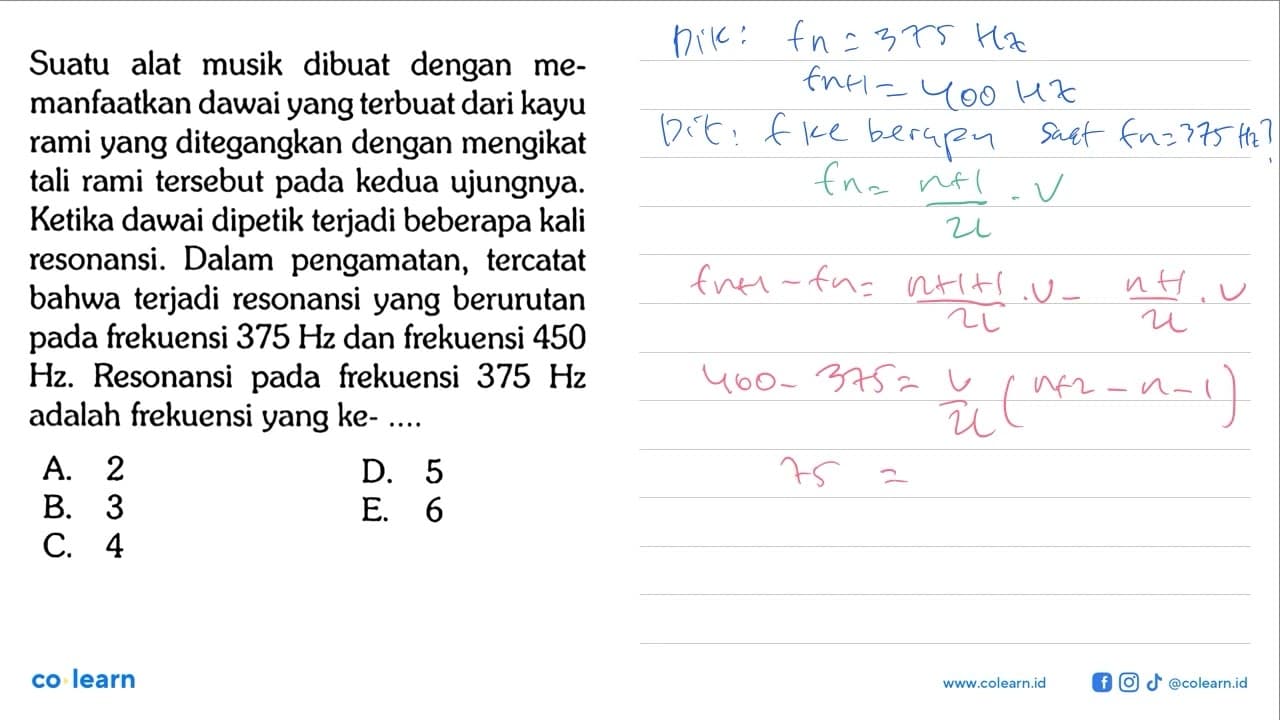 Suatu alat musik dibuat dengan me-
manfaatkan dawai yang terbuat dari kayu
rami yang ditegangkan dengan mengikat
tali rami tersebut pada kedua ujungnya.
Ketika dawai dipetik terjadi beberapa kali
resonansi. Dalam pengamatan, tercatat
bahwa terjadi resonansi yang berurutan
pada frekuensi 375 Hz dan frekuensi 450
Hz. Resonansi pada frekuensi 375 Hz
adalah frekuensi yang ke- ....
A. 2
B. 3
C. 4
D. 5
E. 6
Dik: fn = 375 Hz
fn+1 = 400 Hz
Dit: f ke berapa saat fn = 375 Hz?
fn = n+1/2L . V
fn+1 - fn = n+1+1/2L . V - n+1/2L . V
400 - 375 = V/2L (n+2 - n - 1)
75 =
co learn
www.colearn.id
@colearn.id